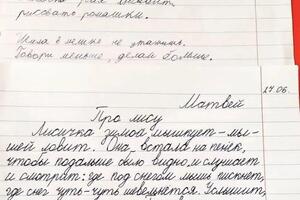 рисовать ромашки.
Шила в мешке не утаишь.
Говори меньше, делай больше.
Матвей
17.06.
Про лису
Лисичка зимой мышкует – мы-
шей ловит. Она встала на пенёк,
чтобы подальше было видно, и слушает
и смотрит: где под снегом мышь пискнет,
где снег чуть-чуть шевельнётся. Услышит,